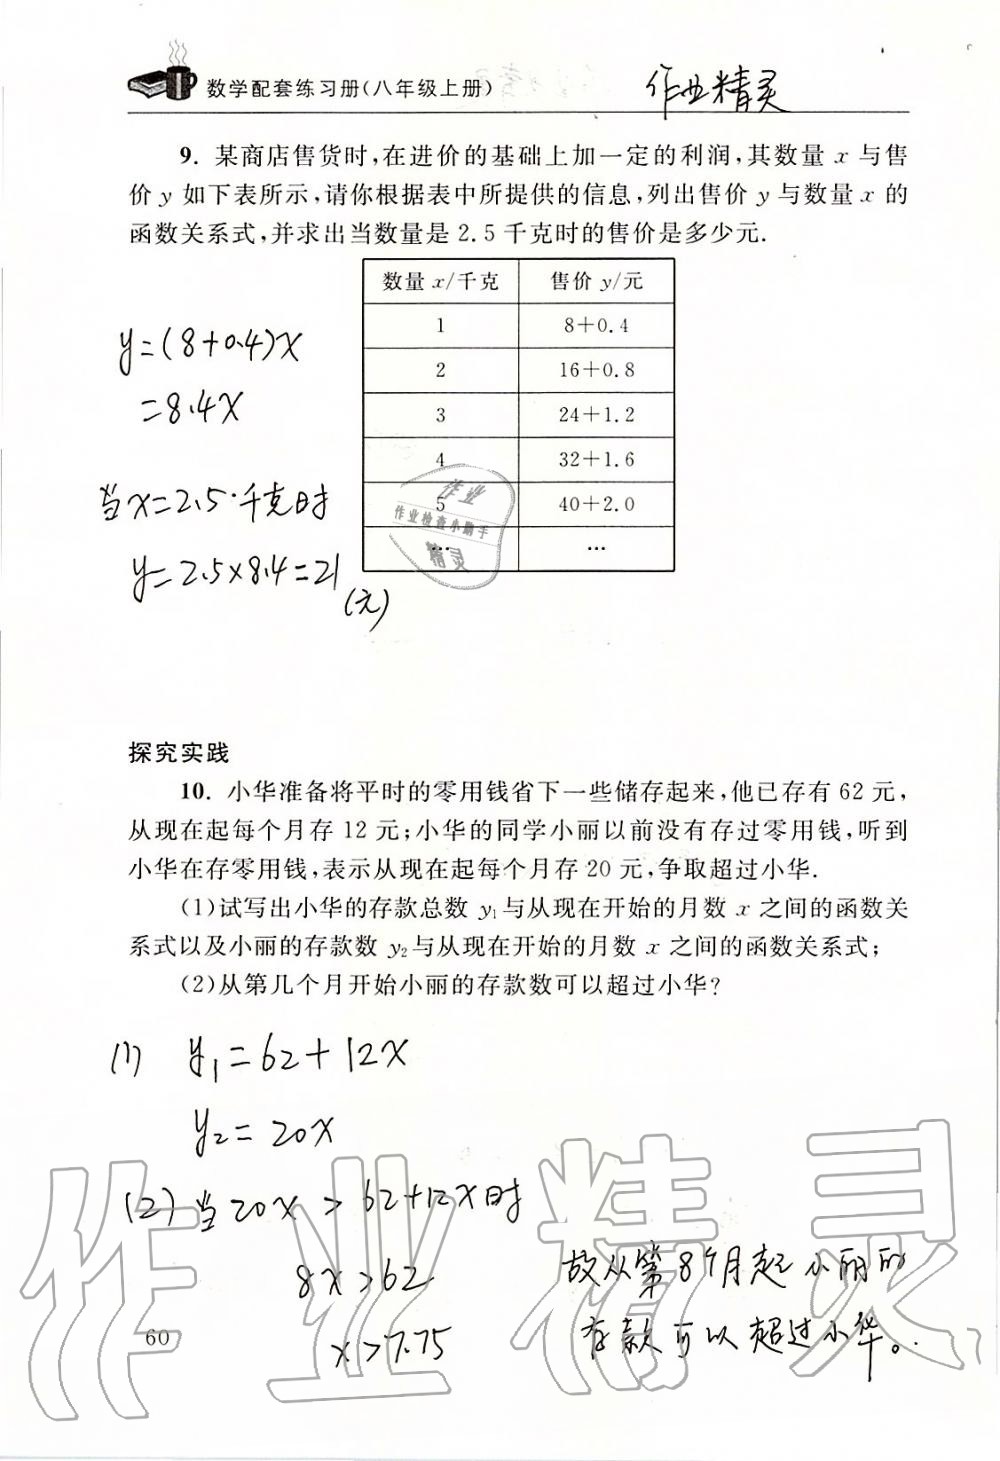 数学配套练习册(八年级上册)
作业精灵
9. 某商店售货时,在进价的基础上加一定的利润,其数量 x 与售
价 y 如下表所示,请你根据表中所提供的信息,列出售价 y 与数量 x 的
函数关系式,并求出当数量是 2.5 千克时的售价是多少元.
数量 x/千克 售价 y/元
1 8+0.4
2 16+0.8
3 24+1.2
4 32+1.6
5 40+2.0
… …
y=(8+0.4)x
=8.4x
当x=2.5千克时
y=2.5×8.4=21
(元)
作业
作业检查小助手
精灵
探究实践
10. 小华准备将平时的零用钱省下一些储存起来,他已存有 62 元,
从现在起每个月存 12 元;小华的同学小丽以前没有存过零用钱,听到
小华在存零用钱,表示从现在起每个月存 20 元,争取超过小华.
(1)试写出小华的存款总数 y₁与从现在开始的月数 x 之间的函数关
系式以及小丽的存款数 y₂与从现在开始的月数 x 之间的函数关系式;
(2)从第几个月开始小丽的存款数可以超过小华?
(1) y₁=62+12x
y₂=20x
(2)当20x>62+12x时
8x>62
x>7.75
故从第8个月起小丽的
存款可以超过小华。
作业精灵
60